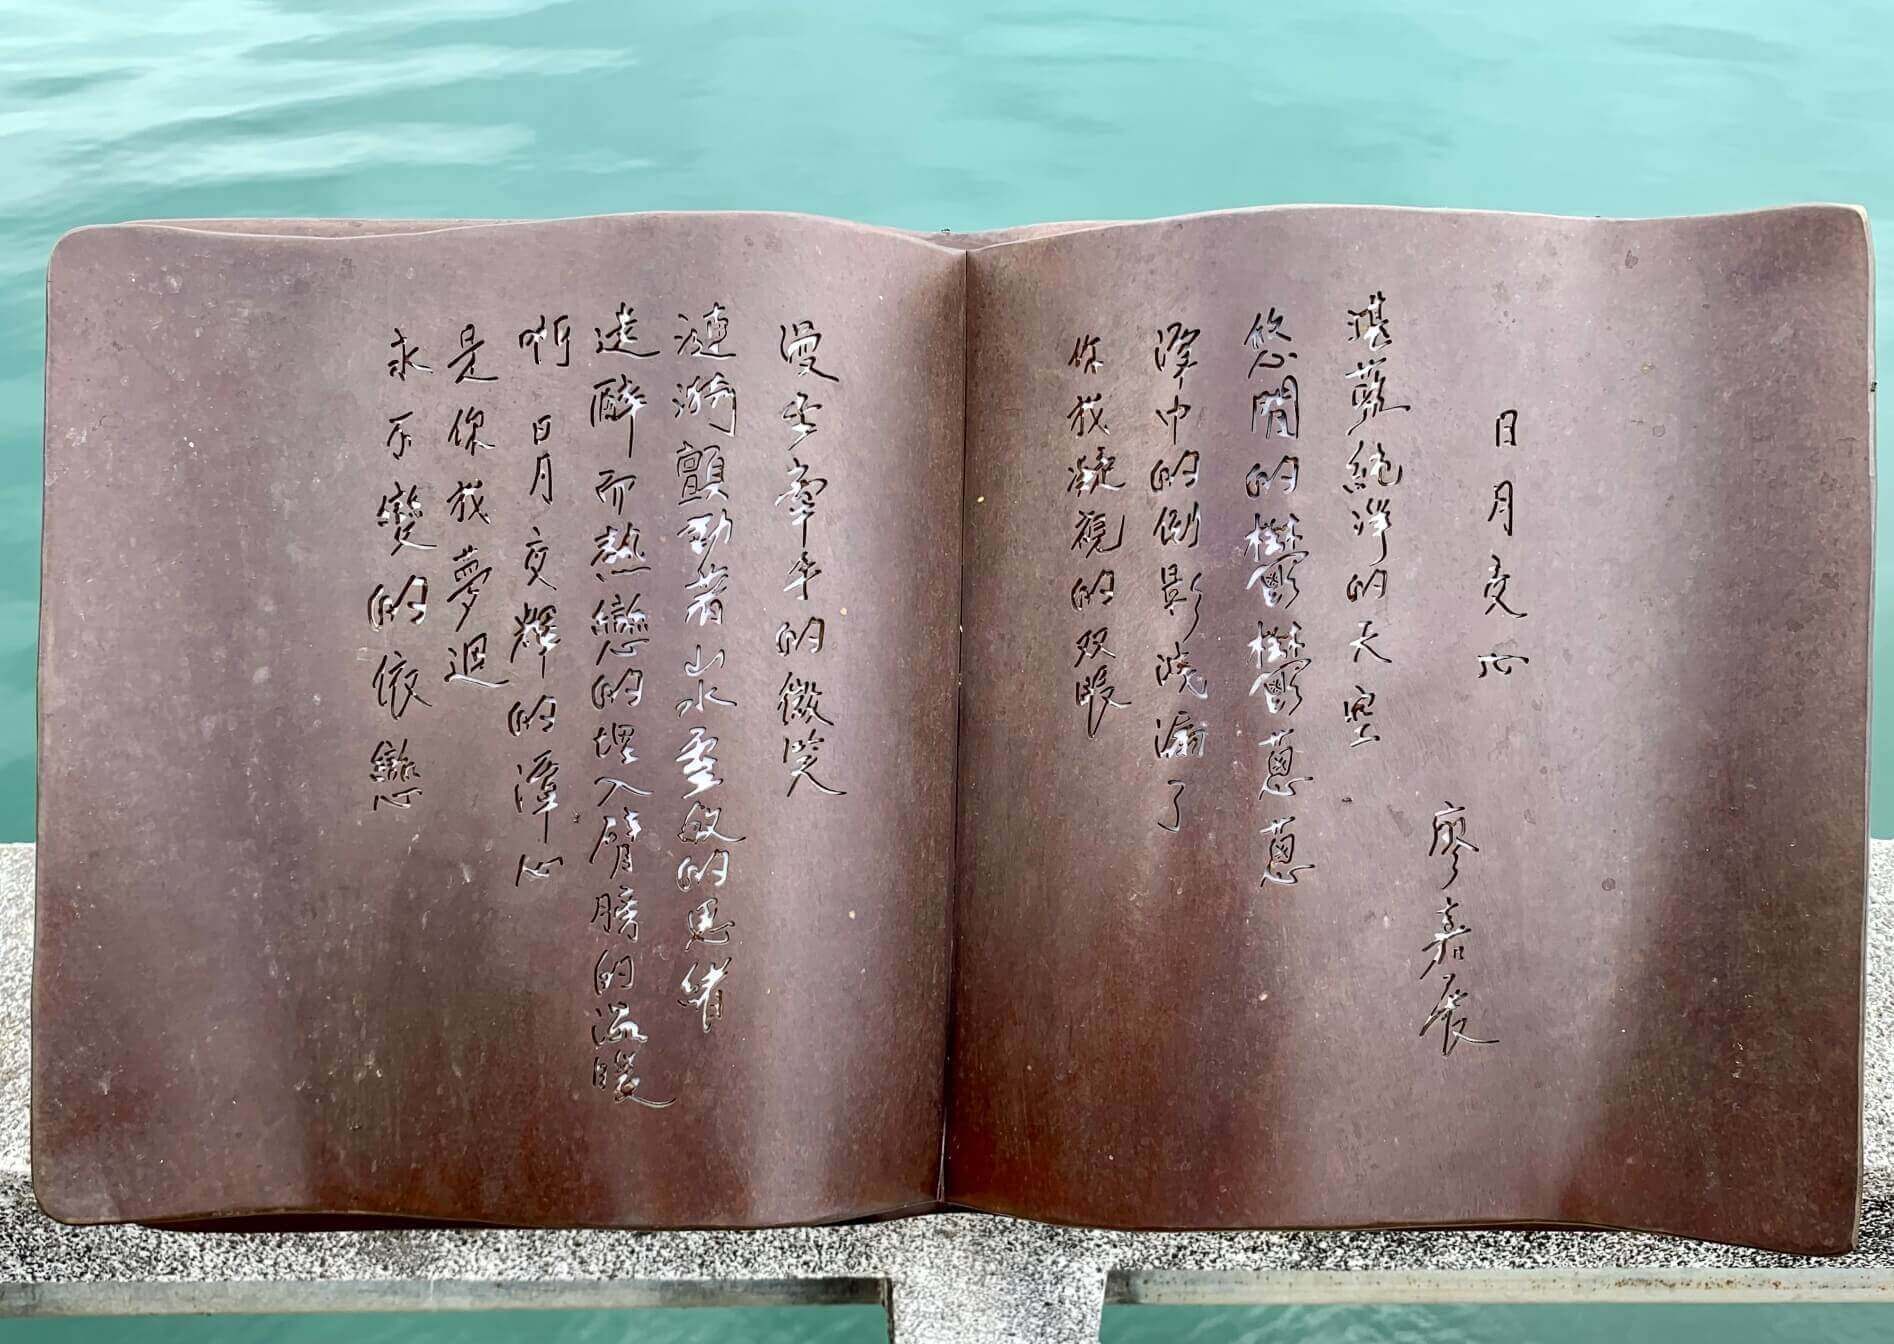 日月交心
廖嘉展
湛藍純淨的天空
悠閒的鬱鬱蔥蔥
潭中的倒影洩漏了
你我凝視的双眼
漫步牽手的微笑
漣漪顫動著山水靈敏的思緒
迷醉而熱戀的埋入臂膀的溫暖
啊 日月交輝的潭心
是你我夢迴
永不變的依戀